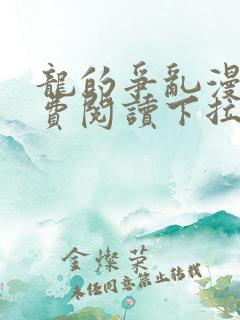 龍的爭亂漫
費閱讀下拉
金燦榮
未經同意禁止轉載